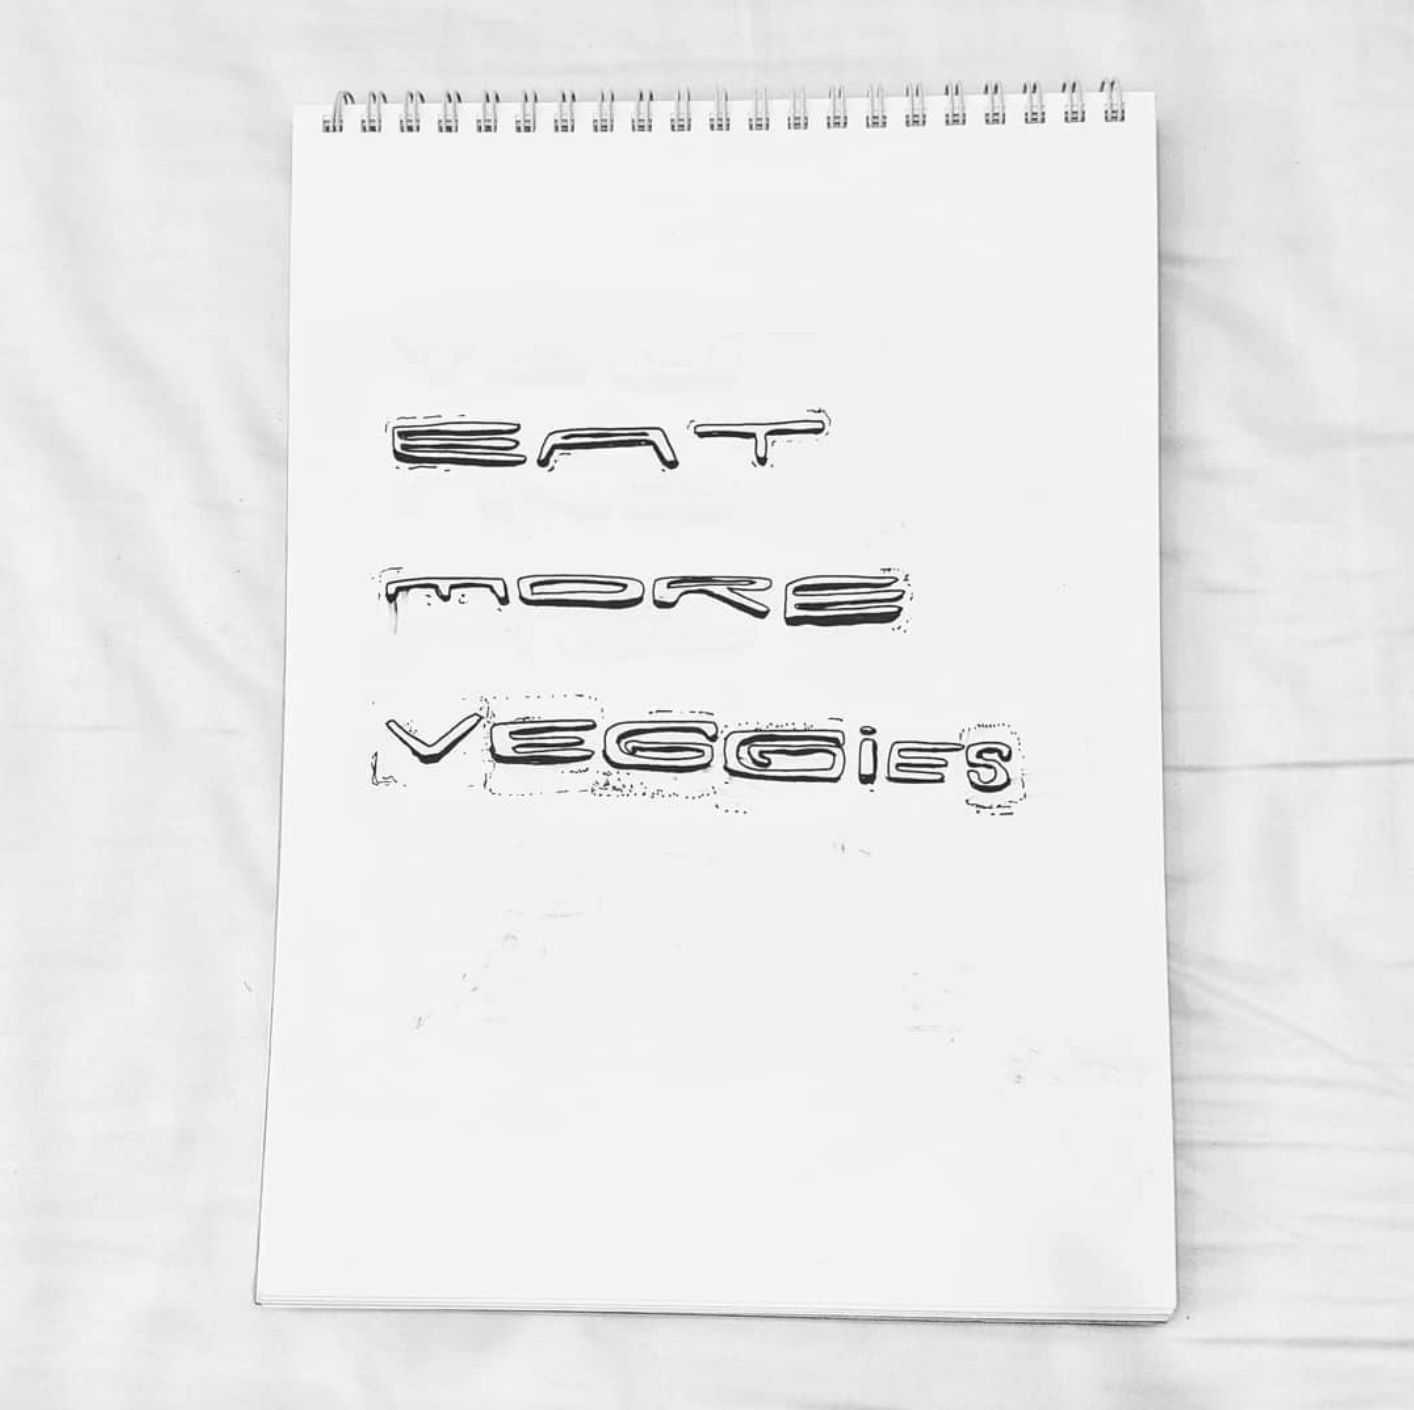 EAT
MORE
VEGGiES